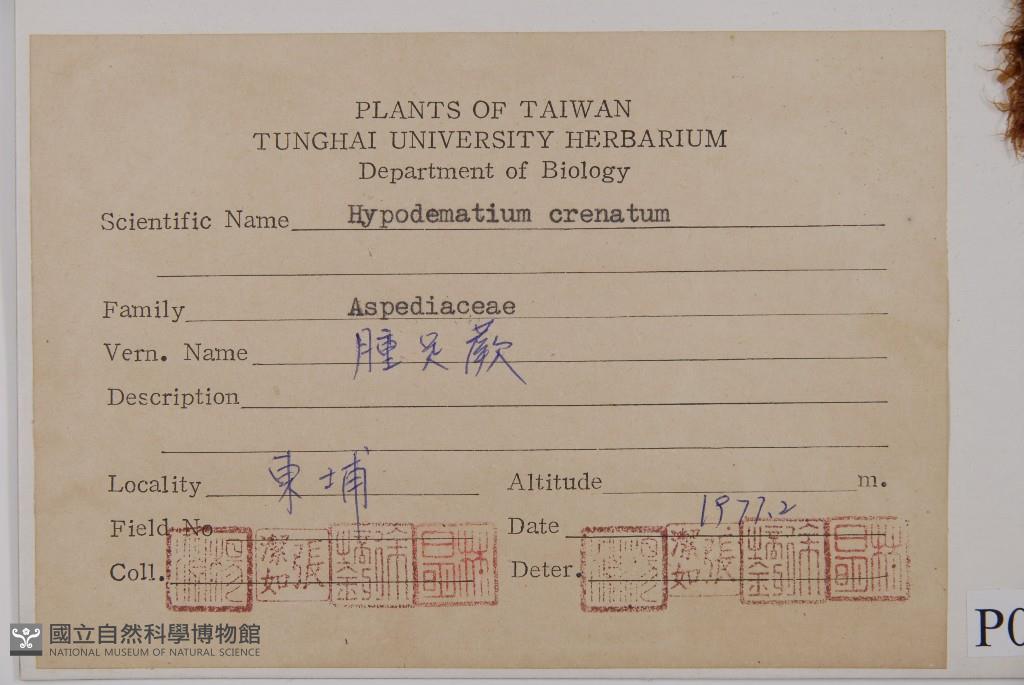 PLANTS OF TAIWAN
TUNGHAI UNIVERSITY HERBARIUM
Department of Biology
Scientific Name Hypodematium crenatum
Family Aspediaceae
Vern. Name 腫足蕨
Description
Locality 東埔 Altitude m.
Field No Date 1977.2
Coll. 張潔如 Deter. 張潔如
國立自然科學博物館
NATIONAL MUSEUM OF NATURAL SCIENCE
P0